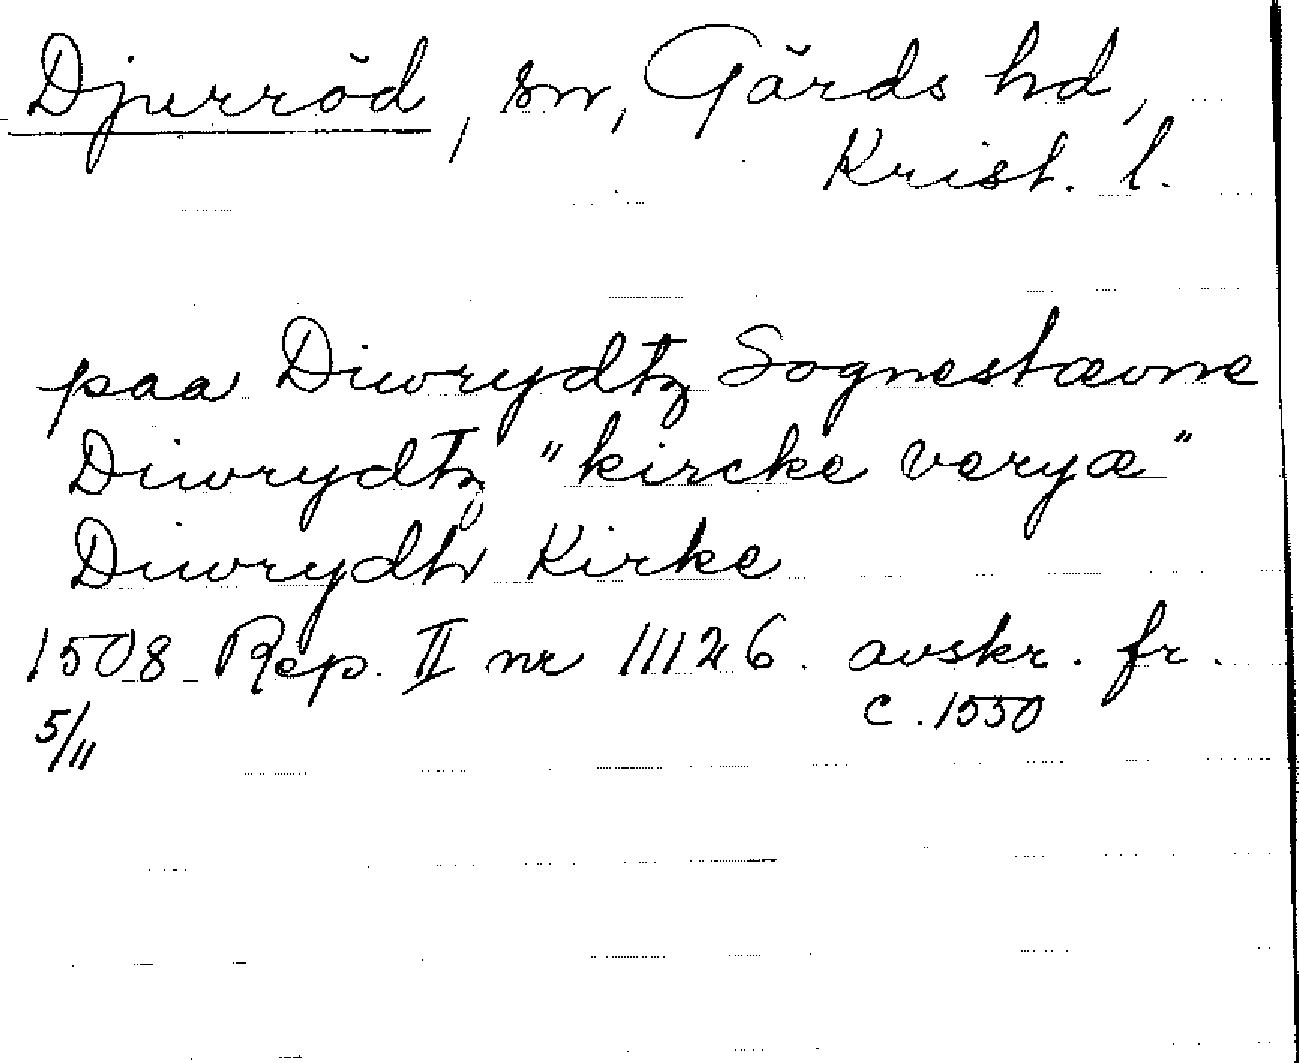 Djurröd, sn, Gärds hd,
Krist. l.
paa Diwrydtz Sognestævne
Diwrydtz "kircke veryæ"
Diwrydh Kirke
1508 Rep. II nr 11126. avskr. fr.
5/11 c. 1550